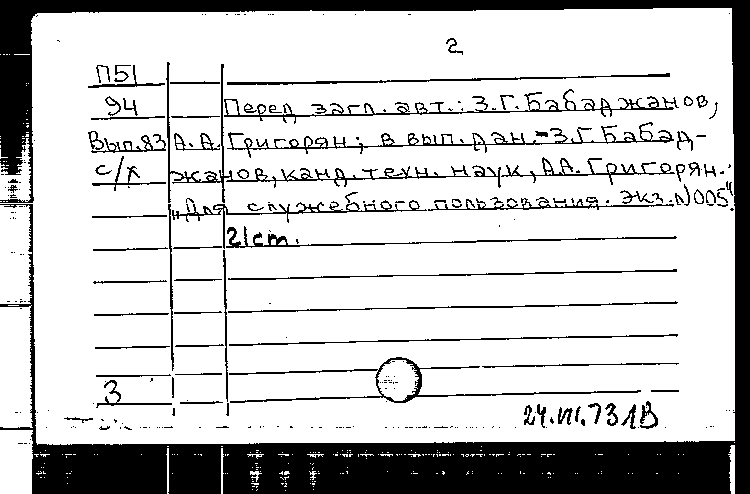 2
П51
94 Перед загл. авт.: З.Г. Бабаджанов,
Вып.83 А.А. Григорян; в вып. дан.-З.Г. Бабад-
с/х жанов, канд. техн. наук, А.А. Григорян.
„Для служебного пользования. Экз. N005".
21cm.
3
24.VII.73 ЛВ